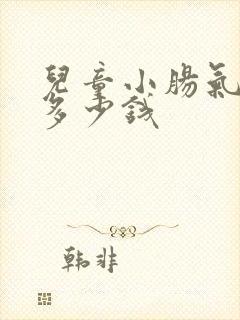 兒童小腸氣
多少錢
韩非